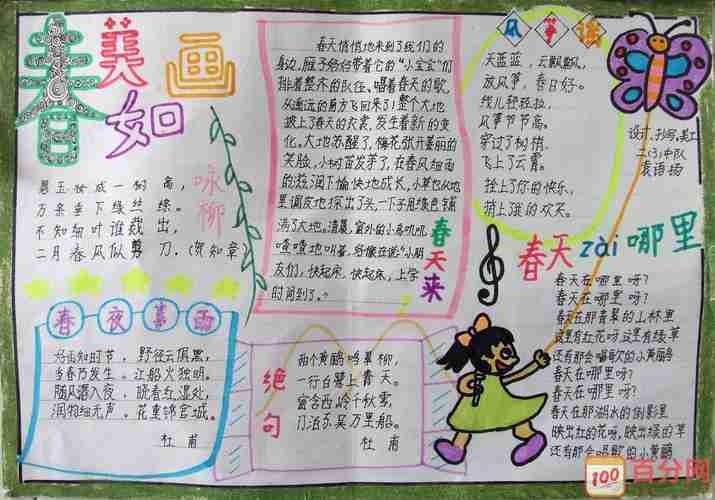 春美如画
咏柳
碧玉妆成一树高,
万条垂下绿丝绦。
不知细叶谁裁出,
二月春风似剪刀.(贺知章)
春天来
春天悄悄地来到了我们的
身边,燕子妈妈带着它的“小宝宝”们
排着整齐的队伍,唱着春天的歌,
从遥远的南方飞回来了!整个大地
披上了春天的衣裳,发生着新的变
化。大地苏醒了,梅花张开美丽的
笑脸,小树苗发芽了,在春风细雨
的滋润下愉快地成长,小草也从地
里调皮地探出了头,一下子用绿色铺
满了大地。清晨,窗外的小鸟叽叽
喳喳地叫着,好像在说“小朋
友们,快起床、快起床,上学
时间到了。”
风筝谣
天蓝蓝,云飘飘,
放风筝,春日好。
线儿轻轻拉,
风筝节节高。
穿过了树梢,
飞上了云霄。
拴上了你的快乐,
捎上了我的欢笑。
二(3)中队
袁语扬
春夜喜雨
好雨知时节,野径云俱黑,
当春乃发生。江船火独明。
随风潜入夜,晓看红湿处,
润物细无声。花重锦官城。
杜甫
绝句
两个黄鹂鸣翠柳,
一行白鹭上青天。
窗含西岭千秋雪,
门泊东吴万里船。
杜甫
春天zài哪里
春天在哪里呀?
春天在哪里呀?
春天在那青翠的山林里
这里有红花呀这里有绿草
还有那会唱歌的小黄鹂
春天在哪里呀?
春天在哪里呀?
春天在那湖水的倒影里
映出红的花呀,映出绿的草
还有那会唱歌的小黄鹂
100 百分网